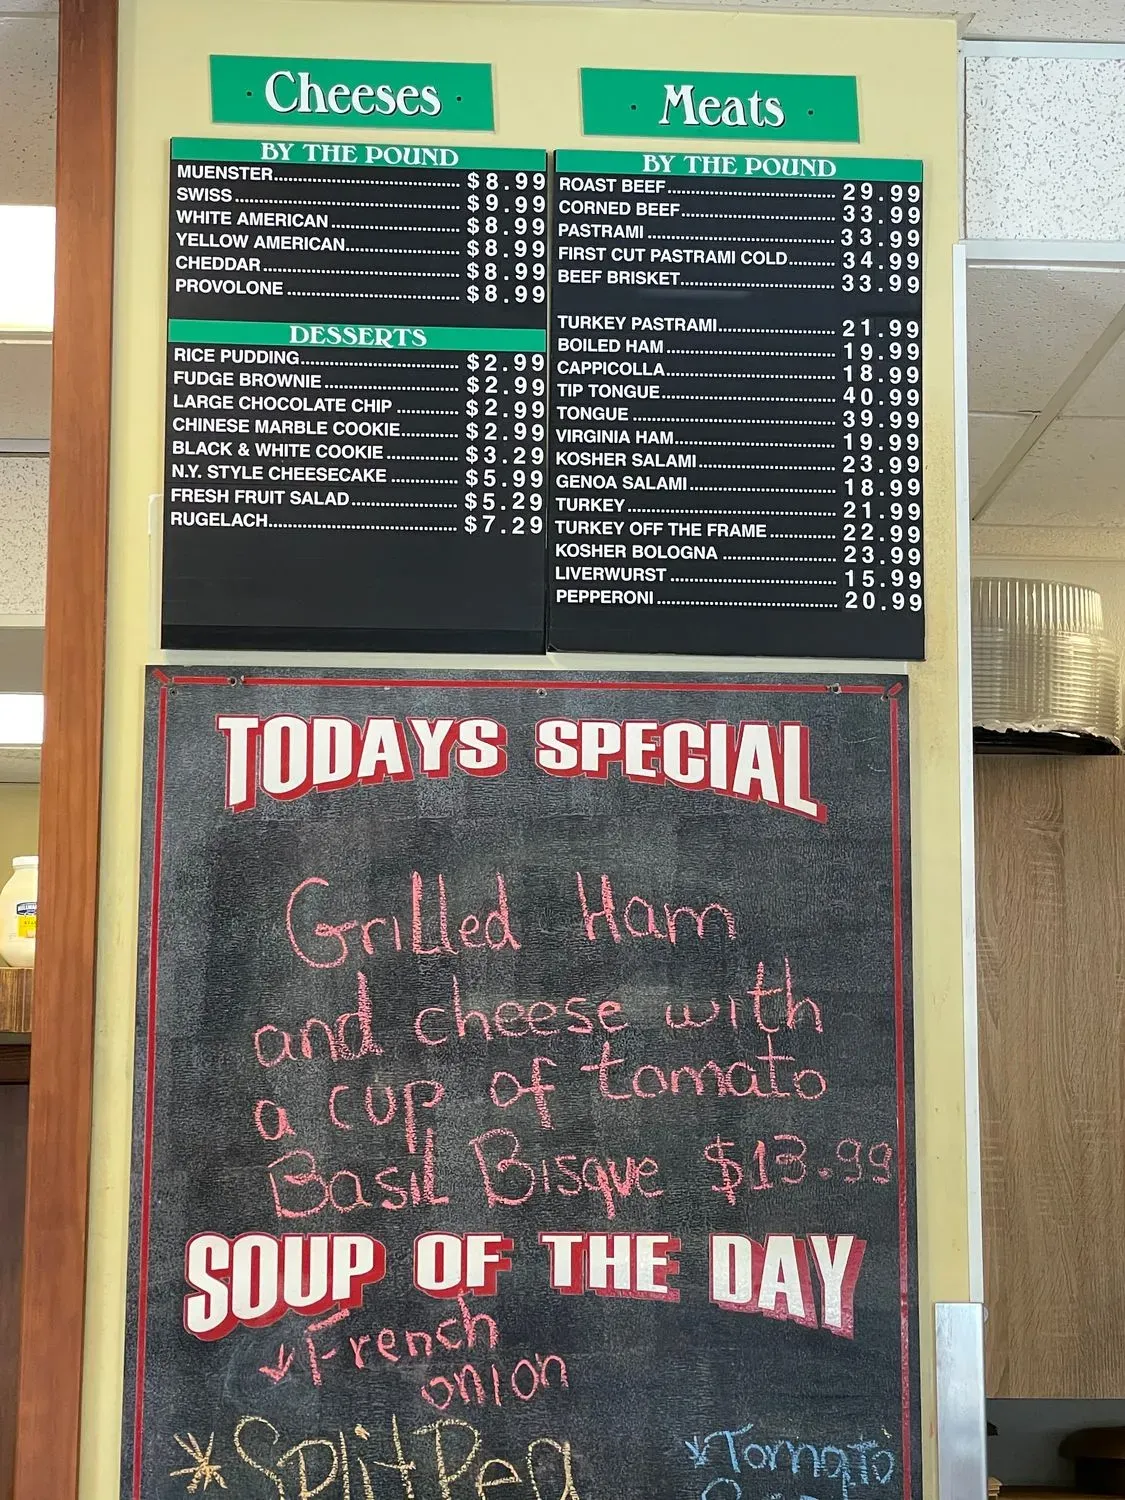 Cheeses
BY THE POUND
MUENSTER........ $8.99
SWISS........ $9.99
WHITE AMERICAN........ $8.99
YELLOW AMERICAN........ $8.99
CHEDDAR........ $8.99
PROVOLONE........ $8.99
DESSERTS
RICE PUDDING........ $2.99
FUDGE BROWNIE........ $2.99
LARGE CHOCOLATE CHIP........ $2.99
CHINESE MARBLE COOKIE........ $2.99
BLACK & WHITE COOKIE........ $3.29
N.Y. STYLE CHEESECAKE........ $5.99
FRESH FRUIT SALAD........ $5.29
RUGELACH........ $7.29
Meats
BY THE POUND
ROAST BEEF........ 29.99
CORNED BEEF........ 33.99
PASTRAMI........ 33.99
FIRST CUT PASTRAMI COLD........ 34.99
BEEF BRISKET........ 33.99
TURKEY PASTRAMI........ 21.99
BOILED HAM........ 19.99
CAPPICOLLA........ 18.99
TIP TONGUE........ 40.99
TONGUE........ 39.99
VIRGINIA HAM........ 19.99
KOSHER SALAMI........ 23.99
GENOA SALAMI........ 18.99
TURKEY........ 21.99
TURKEY OFF THE FRAME........ 22.99
KOSHER BOLOGNA........ 23.99
LIVERWURST........ 15.99
PEPPERONI........ 20.99
TODAYS SPECIAL
Grilled Ham
and cheese with
a cup of tomato
Basil Bisque $13.99
SOUP OF THE DAY
French
onion
*Split Pea
*Tomato